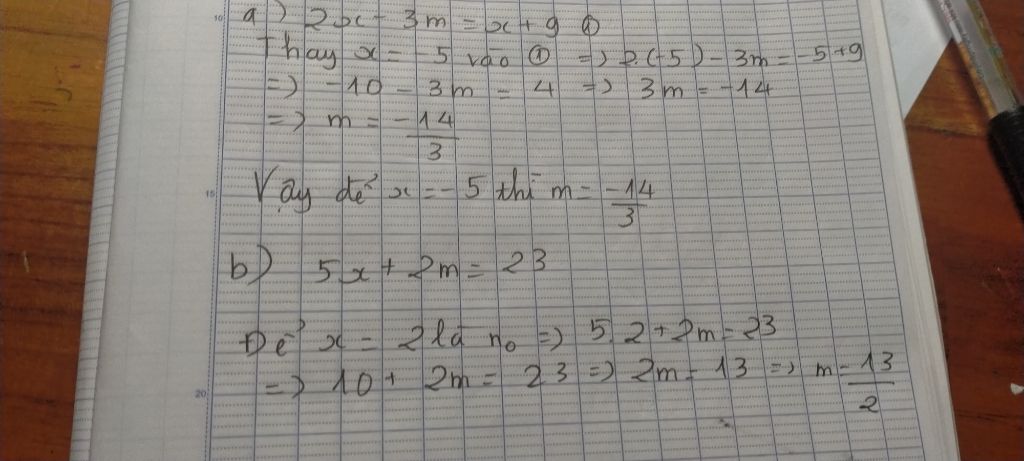 a) 2x - 3m = x + 9 ①
Thay x = -5 vào ① => 2.(-5) - 3m = -5 + 9
=> -10 - 3m = 4 => 3m = -14
=> m = -14/3
Vậy để x = -5 thì m = -14/3
b) 5x + 2m = 23
Để x = 2 là no => 5.2 + 2m = 23
=> 10 + 2m = 23 => 2m = 13 => m = 13/2
10
15
20